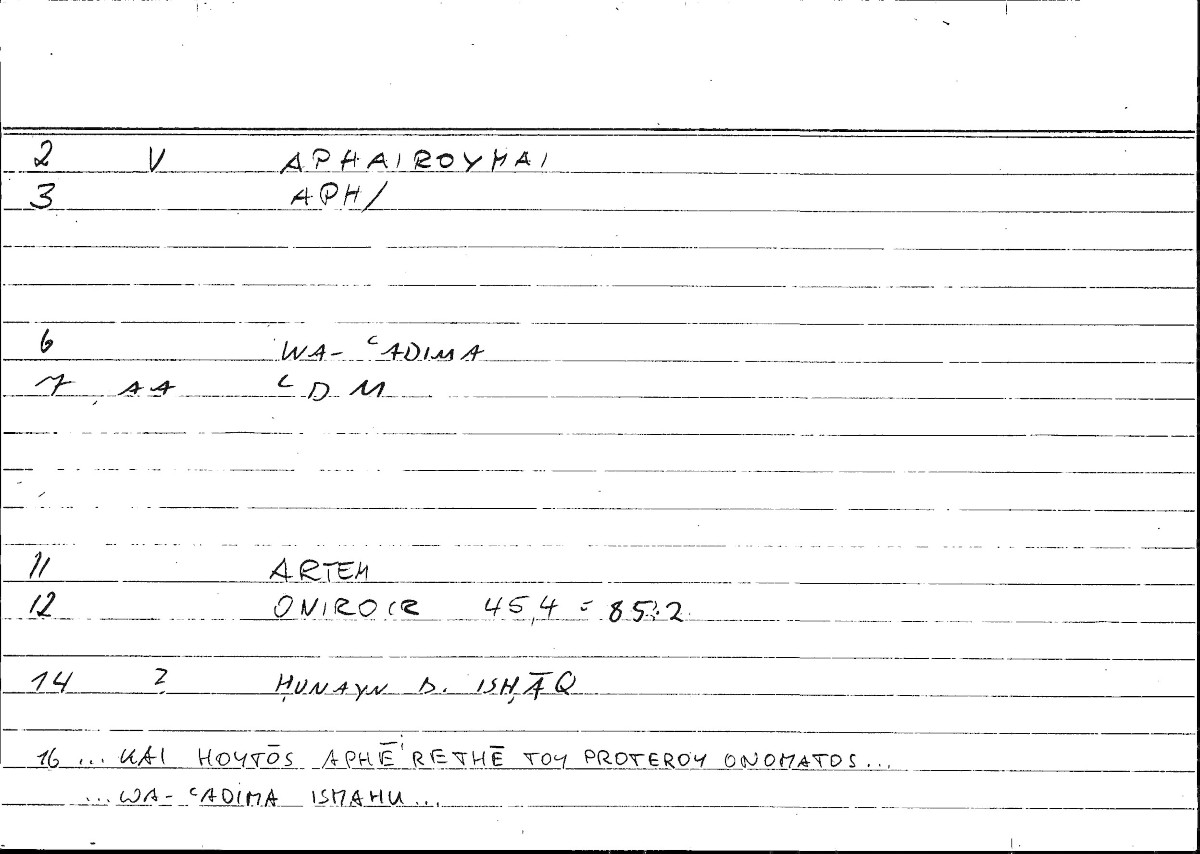 2 V APHAIROYMAI
3 APH/
6 WA-ʿADIMA
7 AA ʿDM
11 ARTEM
12 ONIROCR 45,4 = 85:2
14 2 ḤUNAYN B. ISḤĀQ
16 ... KAI HOYTŌS APHĒIRETHĒ TOY PROTEROY ONOMATOS...
...WA-ʿADIMA ISMAHU...